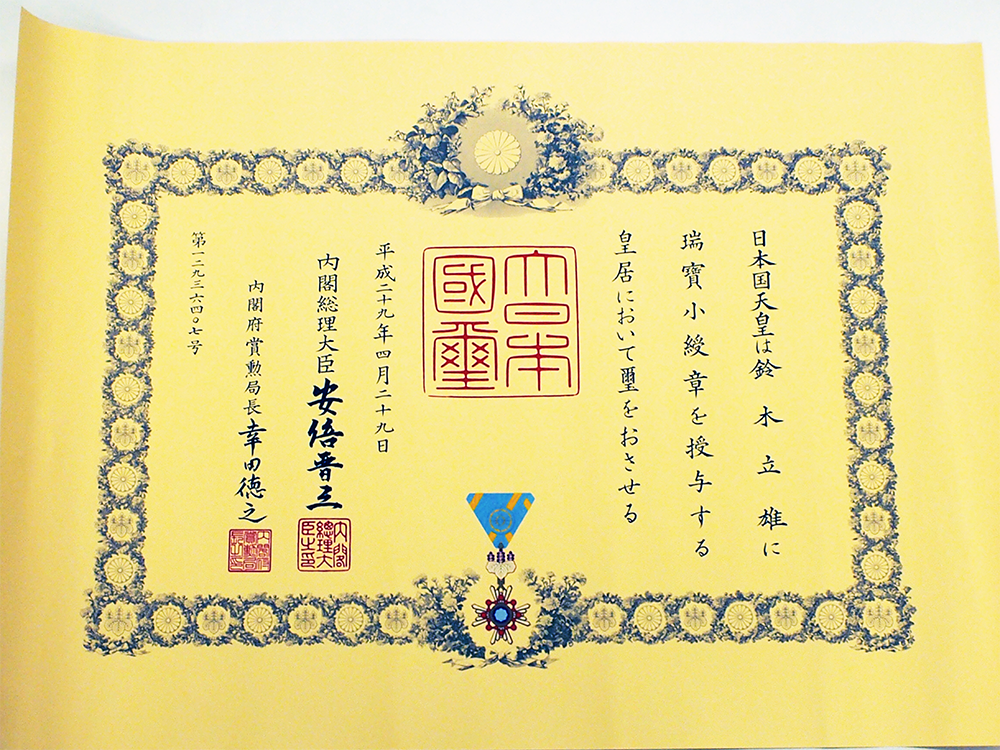 日本国天皇は鈴木立雄に
瑞寶小綬章を授与する
皇居において璽をおさせる
大日本
國璽
平成二十九年四月二十九日
内閣総理大臣 安倍晋三
内閣
總理大
臣之印
内閣府賞勲局長 幸田徳之
第一二九三六四〇七号